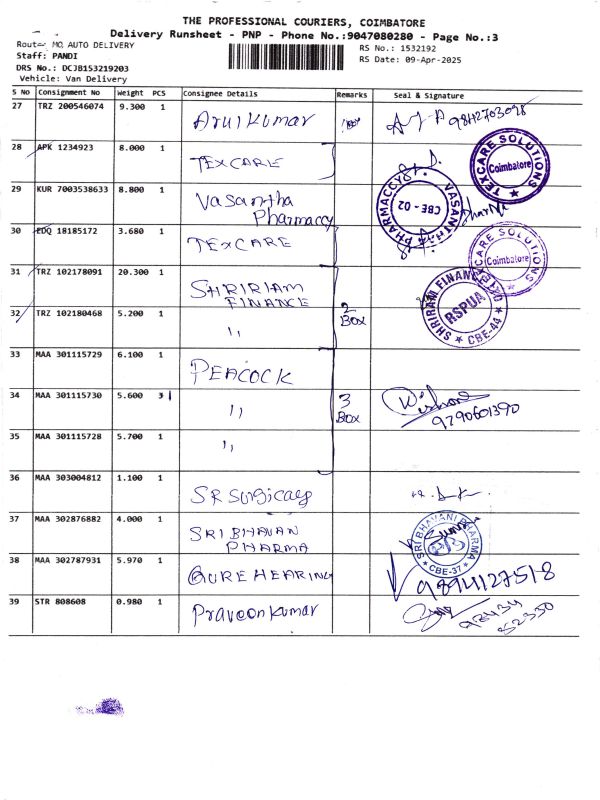 THE PROFESSIONAL COURIERS, COIMBATORE
Delivery Runsheet - PNP - Phone No.:9047080280 - Page No.:3
Route: MO AUTO DELIVERY
RS No.: 1532192
Staff: PANDI
RS Date: 09-Apr-2025
DRS No.: DCJB153219203
Vehicle: Van Delivery
S No Consignment No Weight PCS Consignee Details Remarks Seal & Signature
27 TRZ 200546074 9.300 1 Arulkumar
28 APK 1234923 8.000 1 TEXCARE
TEXCARE SOLUTIONS Coimbatore
29 KUR 7003538633 8.800 1 Vasantha
Pharmaccy
VASANTHA PHARMACCY CBE - 02
30 EDQ 18185172 3.680 1 TEXCARE
CARE SOLUTIONS Coimbatore
31 TRZ 102178091 20.300 1 SHRIRIAM
FINANCE
2
Box
SHRIRAM FINANCE LTD RSPUA CBE-44
32 TRZ 102180468 5.200 1 ,,
33 MAA 301115729 6.100 1 PEACOCK
34 MAA 301115730 5.600 1 ,, 3
Box
9290601390
35 MAA 301115728 5.700 1 ,,
36 MAA 303004812 1.100 1 SR Surgicals
37 MAA 302876882 4.000 1 SRI BHAVAN
PHARMA
SRI BHAVANI PHARMA CBE-37
38 MAA 302787931 5.970 1 AURE HEARING 9894127518
39 STR 808608 0.980 1 Praveenkumar
98434
52330